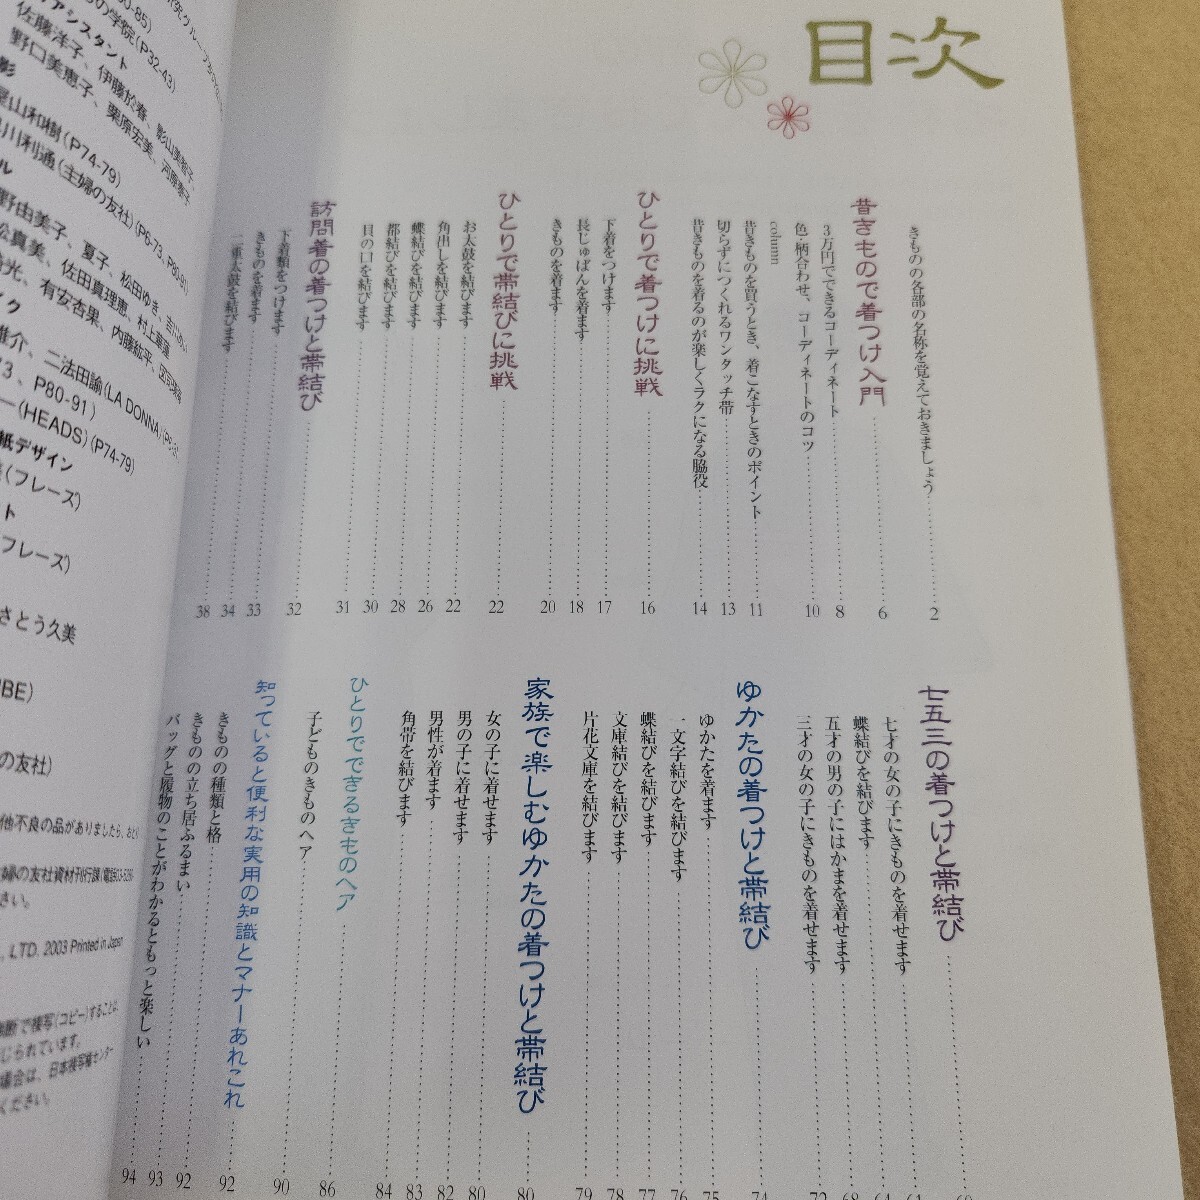 目次
きものの各部の名称を覚えておきましょう 2
昔きもので着つけ入門 6
3万円でできるコーディネート 8
色・柄合わせ、コーディネートのコツ 10
column
昔きものを買うとき、着こなすときのポイント 11
切らずにつくれるワンタッチ帯 13
昔きものを着るのが楽しくラクになる脇役 14
ひとりで着つけに挑戦 16
下着をつけます 17
長じゅばんを着ます 18
きものを着ます 20
ひとりで帯結びに挑戦 22
お太鼓を結びます 22
角出しを結びます 26
蝶結びを結びます 28
都結びを結びます 30
貝の口を結びます 31
訪問着の着つけと帯結び 32
下着類をつけます 33
きものを着ます 34
二重太鼓を結びます 38
七五三の着つけと帯結び 60
七才の女の子にきものを着せます 61
蝶結びを結びます 64
五才の男の子にはかまを着せます 68
三才の女の子にきものを着せます 72
ゆかたの着つけと帯結び 74
ゆかたを着ます 75
一文字結びを結びます 76
蝶結びを結びます 77
文庫結びを結びます 78
片花文庫を結びます 79
家族で楽しむゆかたの着つけと帯結び 80
女の子に着せます 80
男の子に着せます 82
男性が着ます 83
角帯を結びます 84
ひとりでできるきものヘア 86
子どものきものヘア 90
知っていると便利な実用の知識とマナーあれこれ 92
きものの種類と格 92
きものの立ち居ふるまい 93
バッグと履物のことがわかるともっと楽しい 94
の学院(P32-43)
アシスタント
佐藤洋子、伊藤於春、影山美智子、
野口美恵子、栗原宏美、河原寿子
影
星山和樹(P74-79)
川利通(主婦の友社)(P6-73、P80-91)
ル
野由美子、夏子、松田ゆき、
松真美、佐田真理恵、村上華蓮
光、有安杏果、内藤紘平、
イク
雄介、二法田諭(LA DONNA)
73、P80-91)
一(HEADS)(P74-79)
紙デザイン
(フレーズ)
ト
フレーズ)
さとう久美
BE)
の友社)
他不良の品がありましたら、おと
婦の友社資材刊行課(電話03-5280-
さい。
, LTD. 2003 Printed in Japan
断で複写(コピー)することは、
じられています。
場合は、日本複写権センター
ください。